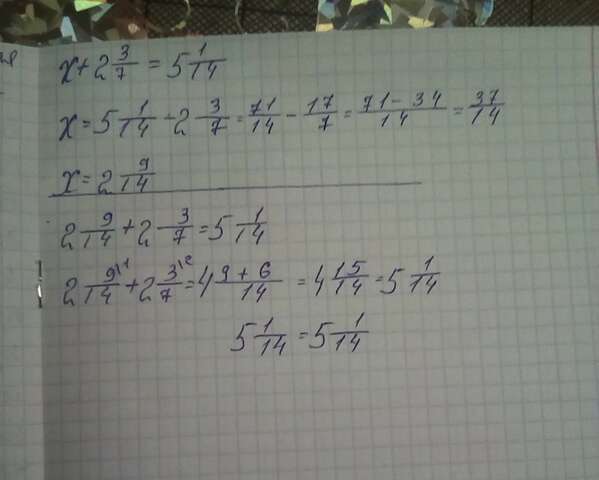 x + 2 3/7 = 5 1/14
x = 5 1/14 - 2 3/7 = 71/14 - 17/7 = 71 - 34/14 = 37/14
x = 2 9/14
2 9/14 + 2 3/7 = 5 1/14
2 9\1/14 + 2 3\2/7 = 4 9 + 6/14 = 4 15/14 = 5 1/14
5 1/14 = 5 1/14